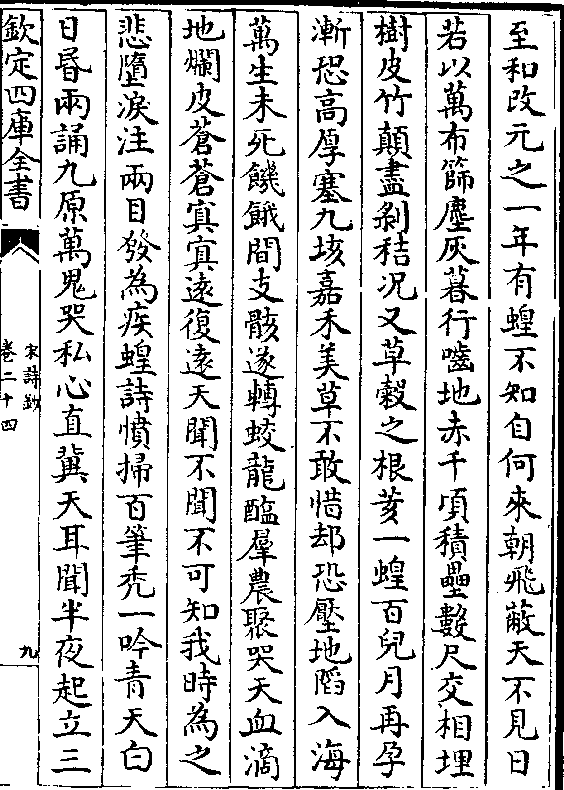 至和改元之一年有蝗不知自何來朝飛蔽天不見日
若以萬布篩塵灰暮行嚙地赤千頃積壘數尺交相埋
樹皮竹顛盡剝秸况又草穀之根荄一蝗百兒月再孕
漸恐高厚塞九垓嘉禾美草不敢惜却恐壓地陷入海
萬生未死饑餓間支骸遂轉蛟龍醢犀農聚哭天血滴
地爛皮蒼蒼寘寘遠復遠天聞不聞不可知我時為之
悲墮淚注兩目發為疾蝗詩憤掃百筆禿一吟青天白
日昬兩誦九原萬鬼哭私心直冀天耳聞半夜起立三
欽定四庫全書
宋詩鈔
卷二十四
九